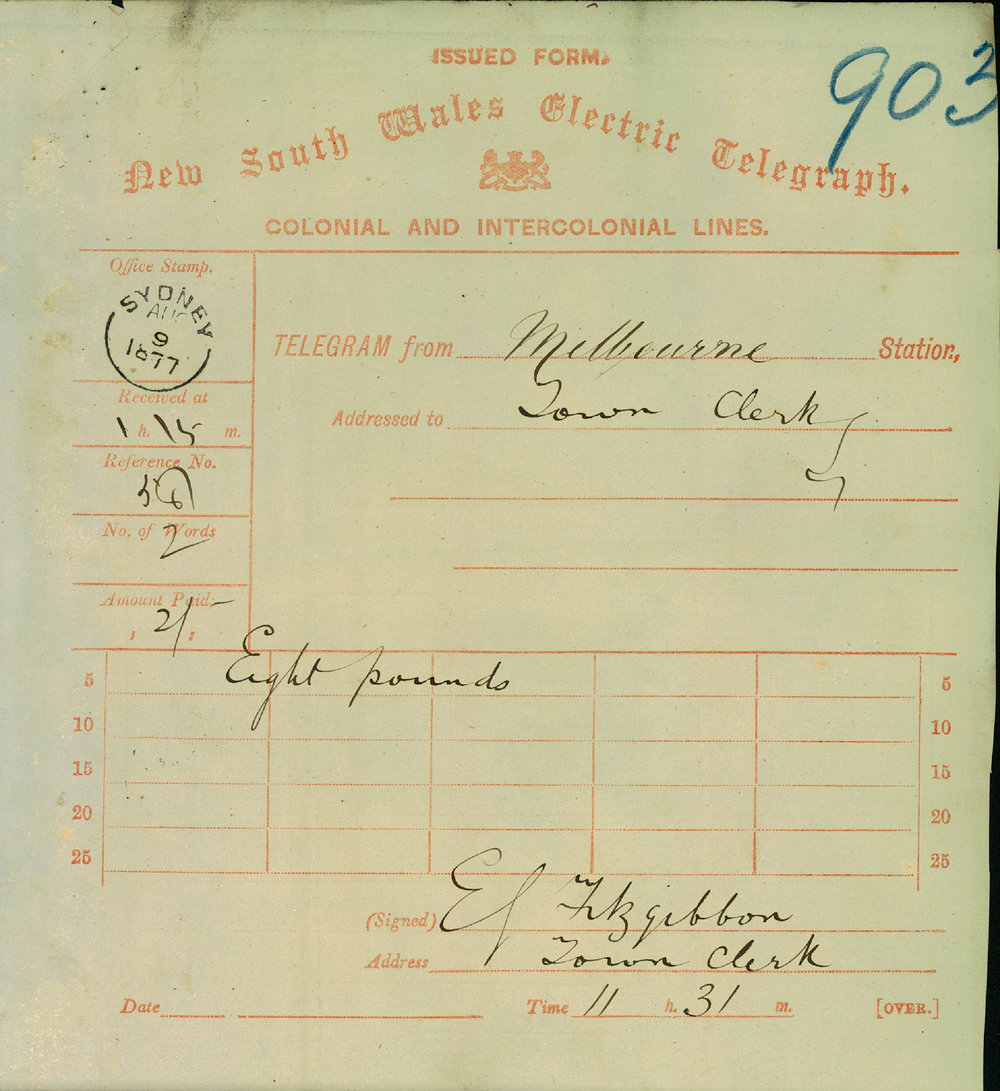 ISSUED FORM.
903
New South Wales Electric Telegraph.
COLONIAL AND INTERCOLONIAL LINES.
Office Stamp.
SYDNEY
AUG
9
1877
TELEGRAM from Melbourne Station,
Addressed to Town Clerk
Received at
1 h. 15 m.
Reference No.
No. of Words
2
Amount Paid.
2/-
Eight pounds
5 5
10 10
15 15
20 20
25 25
(Signed) E Fitzgibbon
Address Town Clerk
Date Time 11 h. 31 m. [OVER.]